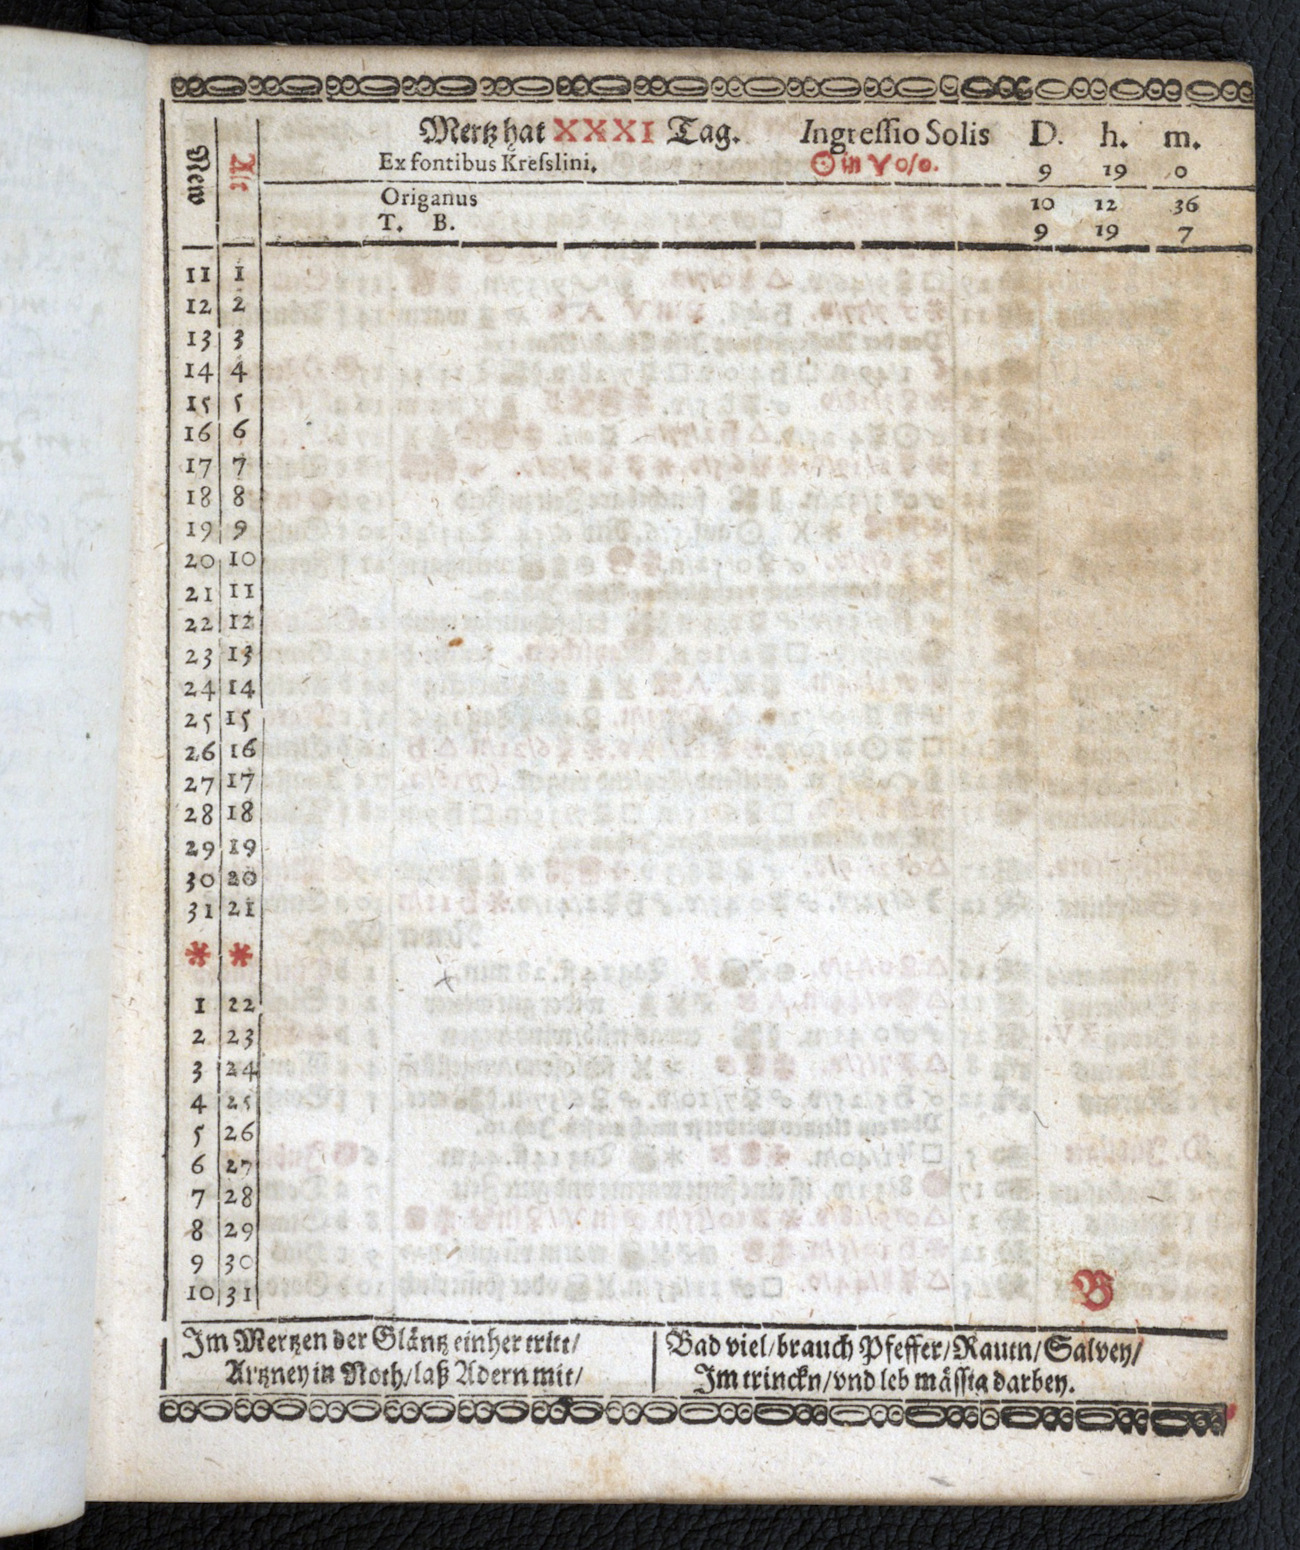 Mertz hat XXXI Tag. Ingressio Solis D. h. m.
Ex fontibus Kresslini. ☉ in ♈ 0/0. 9 19 0
New Alt
Origanus 10 12 36
T. B. 9 19 7
11 1
12 2
13 3
14 4
15 5
16 6
17 7
18 8
19 9
20 10
21 11
22 12
23 13
24 14
25 15
26 16
27 17
28 18
29 19
30 20
31 21
* *
1 22
2 23
3 24
4 25
5 26
6 27
7 28
8 29
9 30
10 31
B
Im Mertzen der Gläntz einher tritt/
Artzney in Noth/ laß Adern mit/
Bad viel/ brauch Pfeffer/ Rautn/ Salvey/
Im trinckn/ vnd leb mässig darbey.